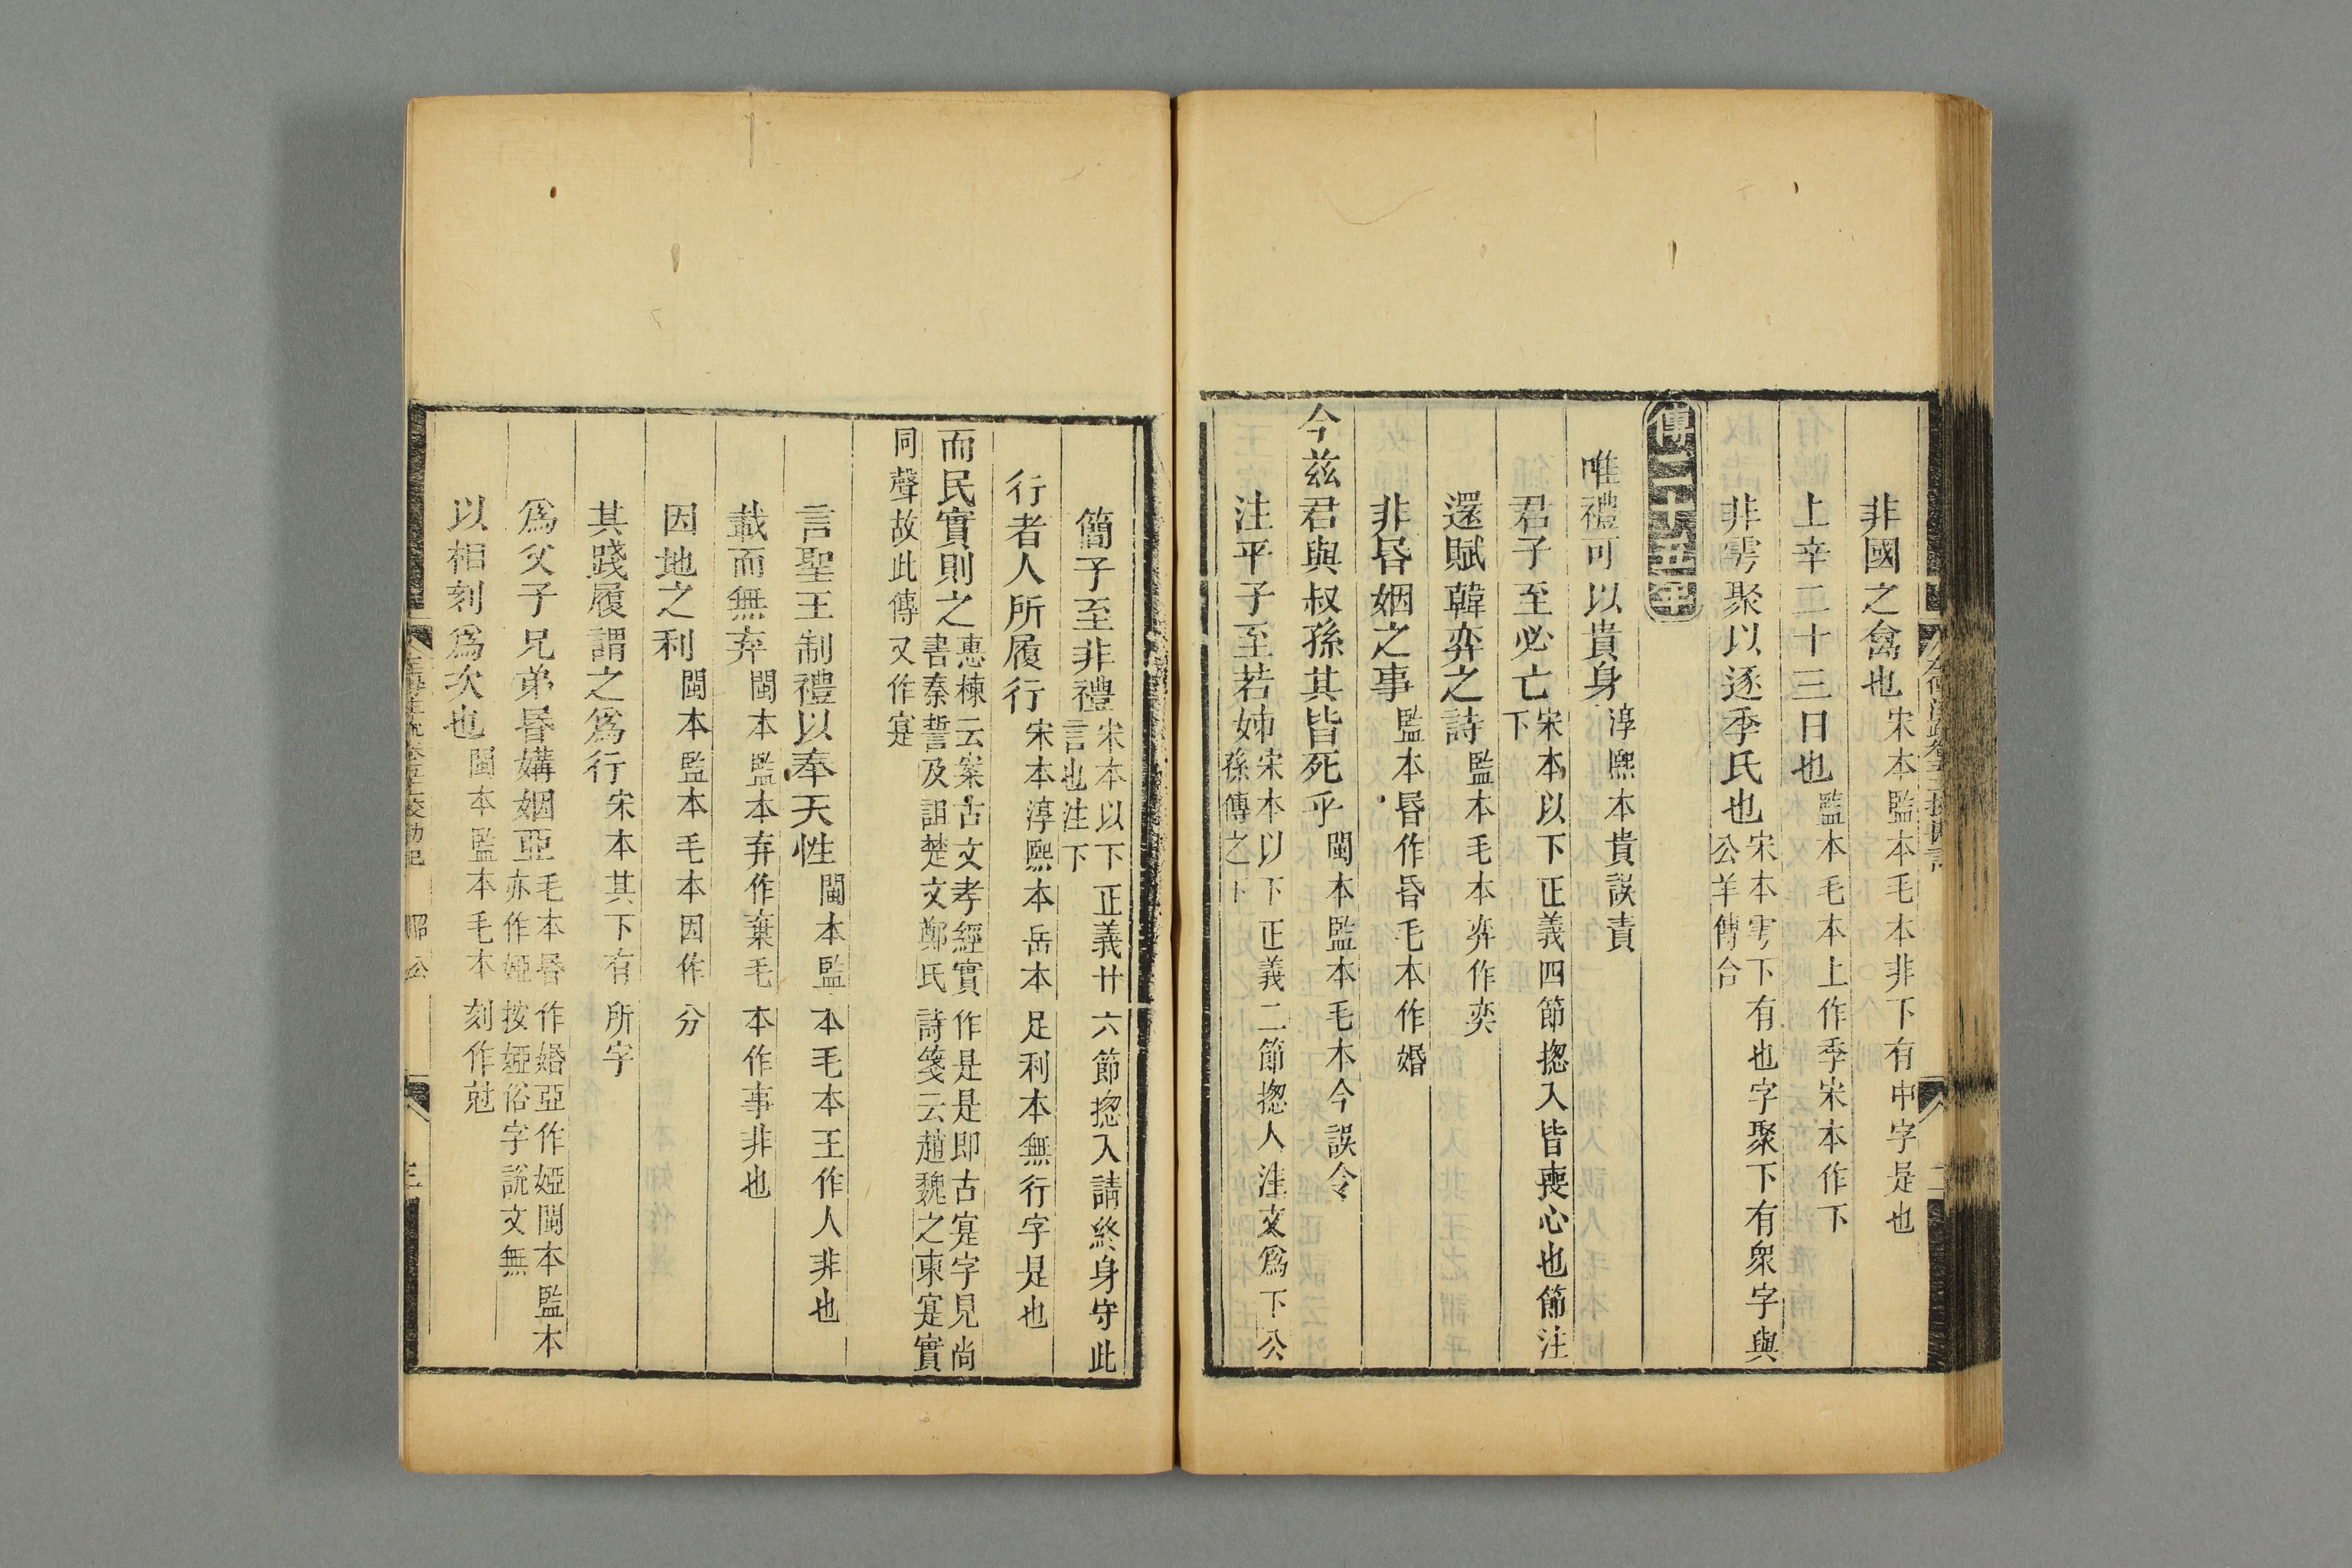 非國之禽也宋本監本毛本非下有中字是也
上辛二十三日也監本毛本上作季宋本作下
非雩聚以逐季氏也宋本雩下有也字聚下有衆字與公羊傳合
傳二十五年
唯禮可以貴身淳熙本貴誤責
君子至必亡宋本以下正義四節揔入皆喪心也節注下
還賦韓弈之詩監本毛本弈作奕
非昏姻之事監本昬作昏毛本作婚
今兹君與叔孫其皆死乎閩本監本毛本今誤令
注平子至若姊宋本以下正義二節揔入注文爲下公孫傳之下
簡子至非禮宋本以下正義廿六節揔入請終身守此言也注下
行者人所履行宋本淳熙本岳本足利本無行字是也
而民實則之惠棟云案古文孝經實作是是即古寔字見尚書秦誓及詛楚文鄭氏詩箋云趙魏之東寔實
同聲故此傳又作寔
言聖王制禮以奉天性閩本監本毛本王作人非也
載而無弃閩本監本弃作棄毛本作事非也
因地之利閩本監本毛本因作分
其踐履謂之爲行宋本其下有所字
爲父子兄弟昬媾姻亞毛本昬作婚亞作婭閩本監本亦作婭按婭俗字說文無
以相刻爲次也閩本監本毛本刻作尅
昭公